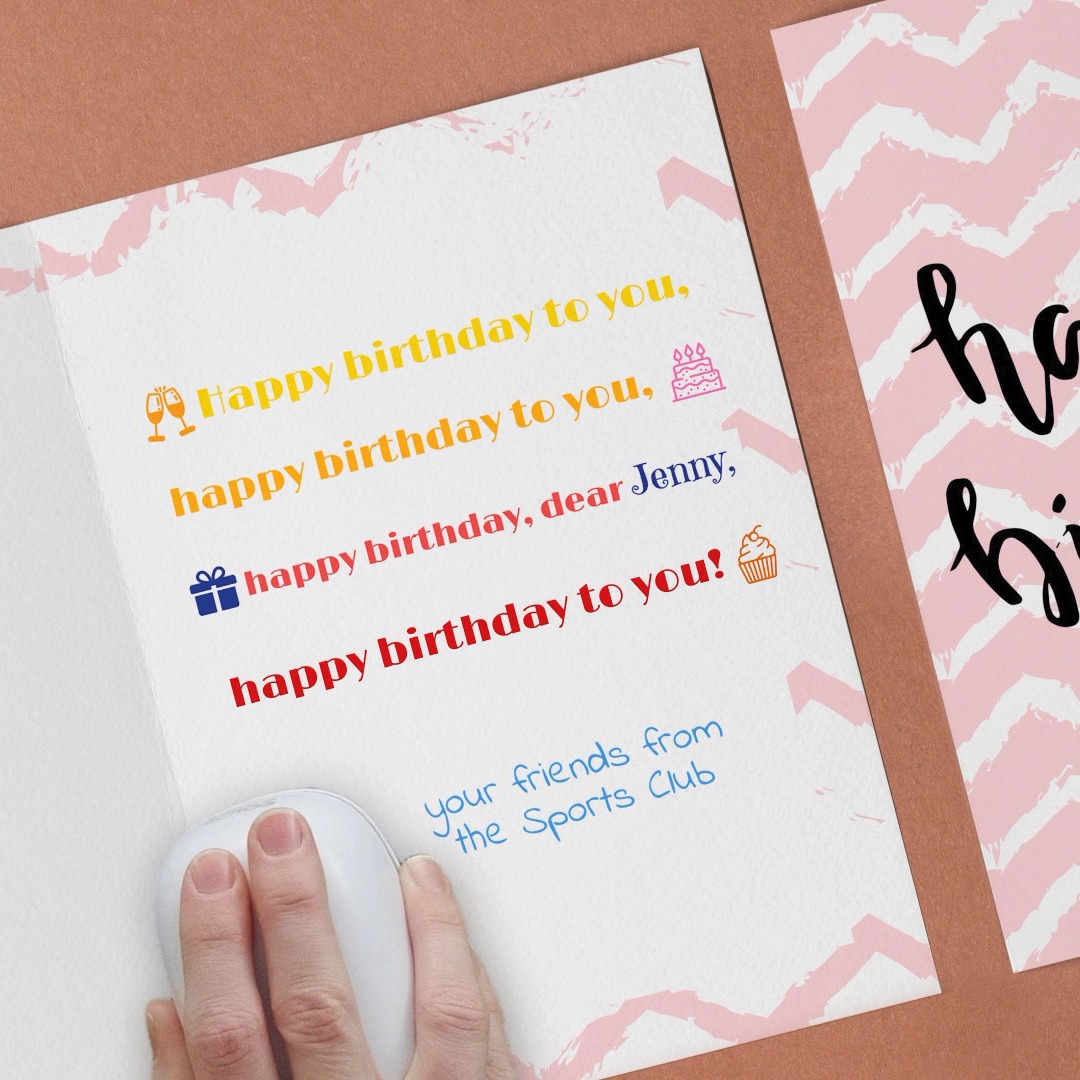 Happy birthday to you,
happy birthday to you,
happy birthday, dear Jenny,
happy birthday to you!
your friends from
the Sports Club